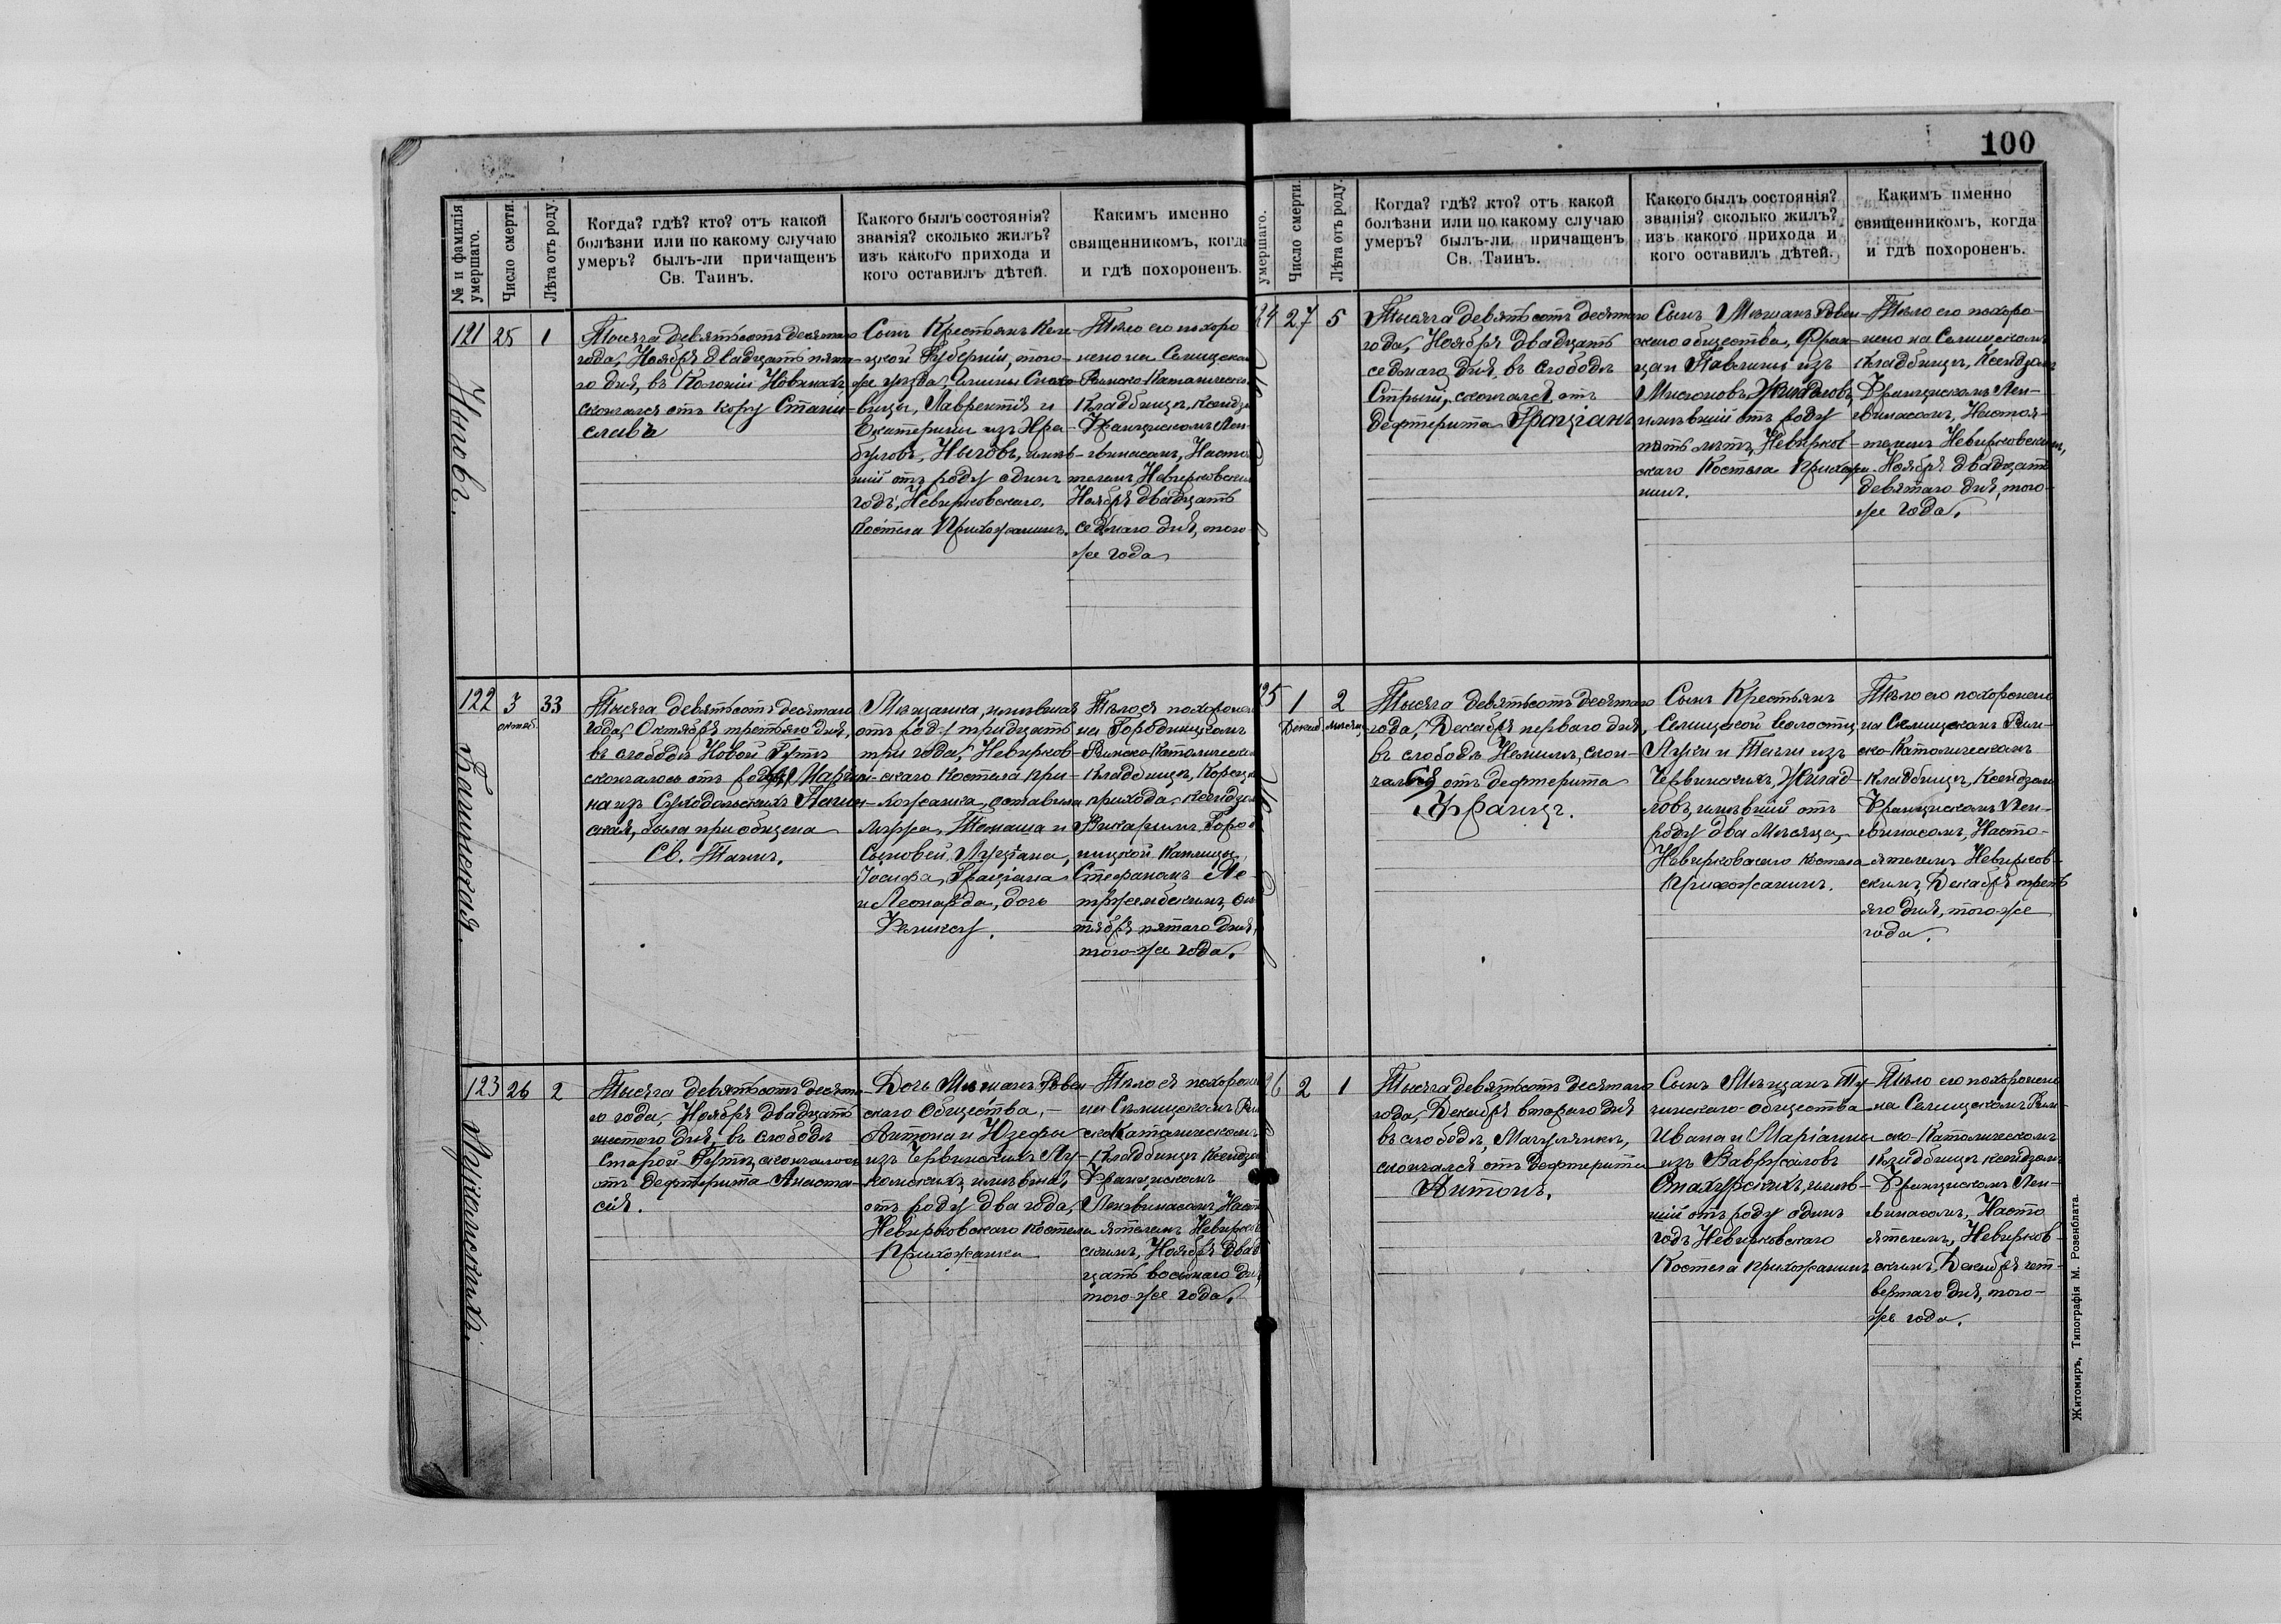 100
№ и фамилія умершаго.
Число смерти.
Лѣта отъ роду.
Когда? гдѣ? кто? отъ какой
болѣзни или по какому случаю
умеръ? былъ-ли причащенъ
Св. Таинъ.
Какого былъ состоянія?
званія? сколько жилъ?
изъ какого прихода и
кого оставилъ дѣтей.
Какимъ именно
священникомъ, когда
и гдѣ похороненъ.
121
25
1
Тысяча девятьсотъ десятаго
года, Ноября двадцать пята-
го дня, въ Колоніи Новинахъ
скончался отъ кору Стани-
славъ
Сынъ Крестьянъ Келе-
цкой Губерніи, того-
же уѣзда, Гмины
вицы, Лаврентія и
Екатерины изъ
имѣв-
шій отъ роду одинъ
годъ, Невирковскаго
Костела Прихожанинъ.
Тѣло его похоро
нено на Селищском
Римско-Католическ.
Кладбищѣ, Ксендзо
Францискомъ Лен-
гвинасомъ, Насто
телемъ Невирковски
Ноября двадцать
седьмаго дня, того-
же года
122
3
октяб.
33
Калинская.
Тысяча девятьсотъ десятаго
года, Октября третьяго дня,
въ слободѣ Новой Гутѣ
скончалась отъ родовъ Маріан-
на изъ Суходольскихъ Калин-
ская, была пріобщена
Св. Таинъ.
Мѣщанка, имѣвшая
отъ роду тридцать
три года, Невирков-
скаго Костела При-
хожанка, оставила
мужа, Томаша и
Сыновей Луціана,
Іосифа, Граціана
и Леонарда, дочь
Феликсу.
Тѣло ея похоронен
на Городницкомъ
Римско-Католически
Кладбищѣ, Корецк
прихода, Ксендзом
Викаріемъ Город
ницкой Каплицы,
Стефаномъ Яс-
тржембскимъ, Ок-
тября пятаго дня,
того-же года.
123
26
2
Тысяча девятьсотъ десята-
го года, Ноября двадцать
шестого дня, въ слободѣ
Старой Гутѣ, скончалась
отъ дефтерита Анаста-
сія.
Дочь Мѣщанъ Ровен-
скаго Общества,
Антона и Юзефы
изъ Червинскихъ Лу-
комскихъ, имѣвшая
отъ роду два года,
Невирковскаго Костела
Прихожанка
Тѣло ея похороне
на Селищскомъ Рим
ско-Католическомъ
Кладбищѣ Ксендзо
Францискомъ
Ленгвинасомъ, Насто
ятелемъ Невирков
скимъ, Ноября двад
цать восьмаго дня
того-же года.
умершаго.
Число смерти.
Лѣта отъ роду.
Когда? гдѣ? кто? отъ какой
болѣзни или по какому случаю
умеръ? былъ-ли причащенъ
Св. Таинъ.
Какого былъ состоянія?
званія? сколько жилъ?
изъ какого прихода и
кого оставилъ дѣтей.
Какимъ именно
священникомъ, когда
и гдѣ похороненъ.
24
27
5
Тысяча девятьсотъ десятаго
года, Ноября двадцать
седьмаго дня, въ слободѣ
Стрый, скончался отъ
дефтерита Граціанъ
Сынъ Мѣщанъ Ровен-
скаго общества, Фран-
ца и Павлины изъ
Жигадловъ,
имѣвшій отъ роду
пять лѣтъ, Невирков-
скаго Костела Прихожа-
нинъ.
Тѣло его похоро-
нено на Селищскомъ
Кладбищѣ, Ксендзомъ
Францискомъ Лен-
гвинасомъ, Настоя-
телемъ Невирковскимъ,
Ноября двадцать
девятаго дня, того-
же года.
25
1
Декаб
2
мѣсяц
Тысяча девятьсотъ десятаго
года, Декабря перваго дня,
въ слободѣ скон-
чался отъ дефтерита
Францъ.
Сынъ Крестьянъ
Селищской волости,
Луки и Теклі изъ
Червинскихъ, Жигад-
ловъ, имѣвшій отъ
роду два мѣсяца,
Невирковскаго Костела
Прихожанинъ.
Тѣло его похоронено
на Селищскомъ Рим-
ско-Католическомъ
Кладбищѣ, Ксендзомъ
Францискомъ Лен-
гвинасомъ, Насто-
ятелемъ Невирков-
скимъ, Декабря треть
яго дня, того-же
года.
26
2
1
Тысяча девятьсотъ десятаго
года, Декабря втораго дня
въ слободѣ, Мачулянкѣ,
скончался отъ дефтерита
Антонъ.
Сынъ Мѣщанъ Ту-
чинскаго общества
Ивана и Маріанны
изъ
имѣв-
шій отъ роду одинъ
годъ Невирковскаго
Костела прихожанинъ
Тѣло его похоронено
на Селищскомъ Рим-
ско-Католическомъ
Кладбищѣ ксендзомъ
Францискомъ Лен-
гвинасомъ, Насто
ятелемъ, Невирков-
скимъ, Декабря чет-
вертаго дня, того-
же года.
Житомиръ, Типографія М. Розенблата.